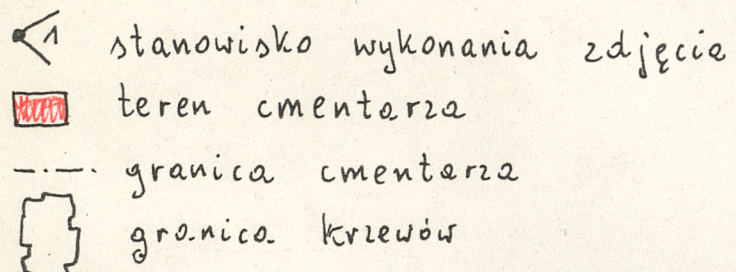 1 stanowisko wykonania zdjęcia
teren cmentarza
granica cmentarza
granica krzewów